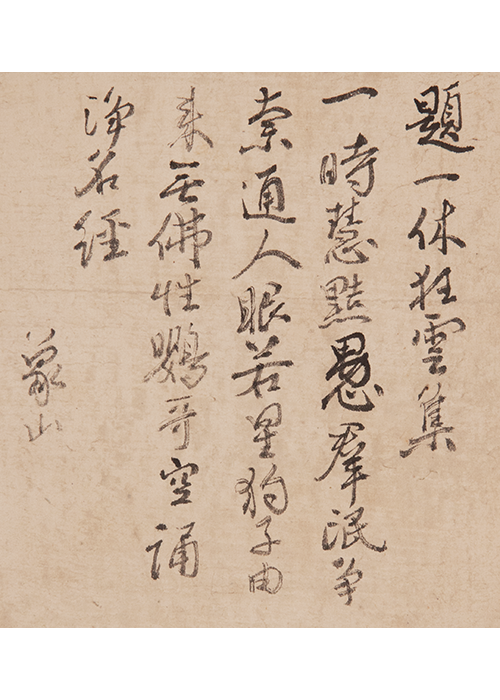 題一休狂雲集
一時慧黠愚羣泯争
奈通人眼若星狗子由
来無佛性鸚哥空誦
浄名經
象山